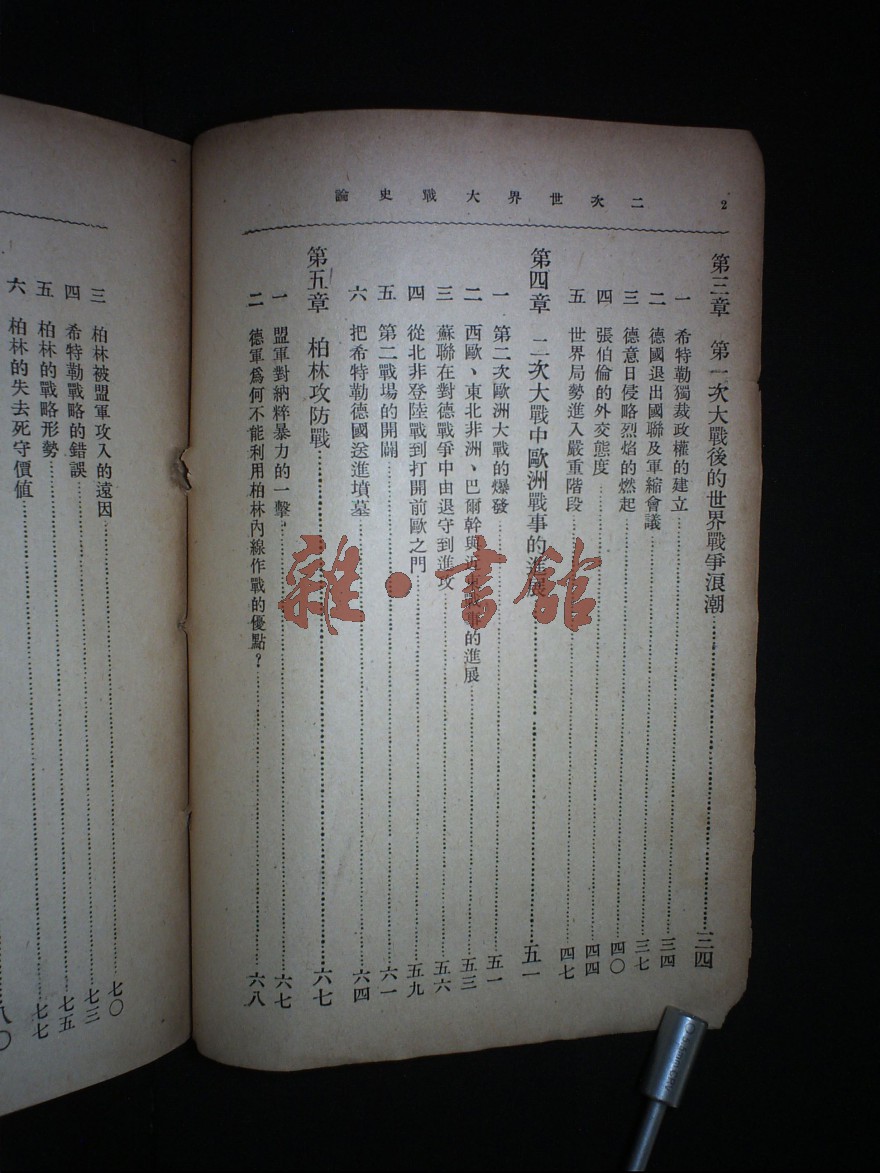 二次世界大戰史論
2
第三章 第一次大戰後的世界戰爭浪潮 三四
一 希特勒獨裁政權的建立 三四
二 德國退出國聯及軍縮會議 三七
三 德意日侵略烈焰的燃起 四〇
四 張伯倫的外交態度 四四
五 世界局勢進入嚴重階段 四七
第四章 二次大戰中歐洲戰事的進展 五一
一 第二次歐洲大戰的爆發 五一
二 西歐、東北非洲、巴爾幹與近東戰事的進展 五三
三 蘇聯在對德戰爭中由退守到進攻 五六
四 從北非登陸戰到打開前歐之門 五九
五 第二戰場的開闢 六一
六 把希特勒德國送進墳墓 六四
第五章 柏林攻防戰 六七
一 盟軍對納粹暴力的一擊 六七
二 德軍爲何不能利用柏林內線作戰的優點? 六八
三 柏林被盟軍攻入的遠因 七〇
四 希特勒戰略的錯誤 七三
五 柏林的戰略形勢 七五
六 柏林的失去死守價値 七七
八〇
雜·書館